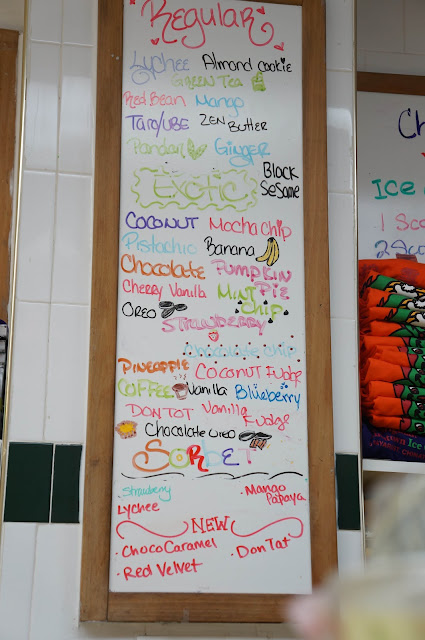 Regular
Lychee Almond cookie
Green Tea
Red Bean Mango
Taro/UBE Zen Butter
Pandan Ginger
Black
Exotic Sesame
Coconut Mocha chip
Pistachio Banana
Chocolate Pumpkin
Cherry Vanilla Mint Pie
Oreo Chip
Strawberry
Chocolate chip
Pineapple Coconut Fudge
Coffee Vanilla Blueberry
Don Tot Vanilla
Fudge
Chocolate oreo
Sorbet
Strawberry Mango
Lychee Papaya
NEW
• Choco Caramel • Don Tat
• Red Velvet
Ch
Ice
1 Sco
2 Sco